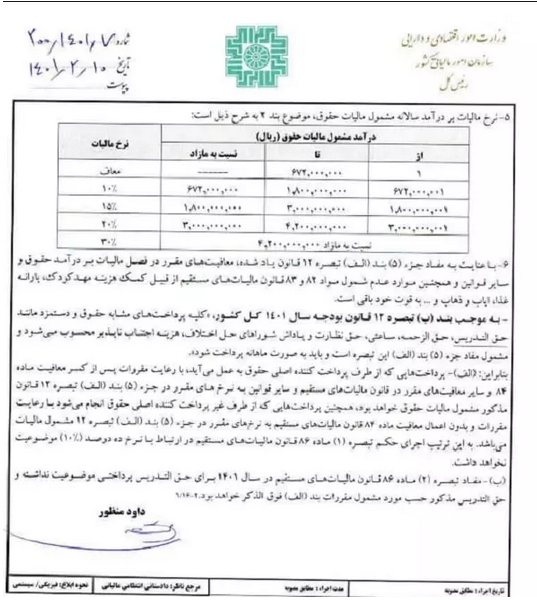 وزارت امور اقتصادی و دارایی
سازمان امور مالیاتی کشور
رئیس کل
شماره ۲۰۰/۱۴۰۱/۷
تاریخ ۱۴۰۱/۲/۱۰
پیوست
۵- نرخ مالیات بر درآمد سالانه مشمول مالیات حقوق، موضوع بند ۲ به شرح ذیل است:
درآمد مشمول مالیات حقوق (ریال) نرخ مالیات
از تا نسبت به مازاد
۱ ۶۷۲,۰۰۰,۰۰۰ ------ معاف
۶۷۲,۰۰۰,۰۰۱ ۱,۸۰۰,۰۰۰,۰۰۰ ۶۷۲,۰۰۰,۰۰۰ ۱۰٪
۱,۸۰۰,۰۰۰,۰۰۱ ۳,۰۰۰,۰۰۰,۰۰۰ ۱,۸۰۰,۰۰۰,۰۰۰ ۱۵٪
۳,۰۰۰,۰۰۰,۰۰۱ ۴,۲۰۰,۰۰۰,۰۰۰ ۳,۰۰۰,۰۰۰,۰۰۰ ۲۰٪
نسبت به مازاد ۴,۲۰۰,۰۰۰,۰۰۰ ۳۰٪
۶- با عنایت به مفاد جزء (۵) بند (الف) تبصره ۱۲ قانون یاد شده، معافیت‌های مقرر در فصل مالیات بر درآمد حقوق و
سایر قوانین و همچنین موارد عدم شمول مواد ۸۲ و ۸۳ قانون مالیات‌های مستقیم از قبیل کمک هزینه مهدکودک، یارانه
غذا، ایاب و ذهاب و ... به قوت خود باقی است.
- به موجب بند (ب) تبصره ۱۲ قانون بودجه سال ۱۴۰۱ کل کشور، «کلیه پرداخت‌های مشابه حقوق و دستمزد مانند
حق التدریس، حق الزحمه، ساعتی، حق نظارت و پاداش شوراهای حل اختلاف، هزینه اجتناب ناپذیر محسوب می‌شود و
مشمول مفاد جزء (۵) بند (الف) این تبصره است و باید به صورت ماهانه پرداخت شود».
بنابراین: (الف)- پرداخت‌هایی که از طرف پرداخت کننده اصلی حقوق به عمل می‌آید، با رعایت مقررات پس از کسر معافیت ماده
۸۴ و سایر معافیت‌های مقرر در قانون مالیات‌های مستقیم و سایر قوانین به نرخ های مقرر در جزء (۵) بند (الف) تبصره ۱۲ قانون
مذکور مشمول مالیات حقوق خواهد بود، همچنین پرداخت‌هایی که از طرف غیر پرداخت کننده اصلی حقوق انجام می‌شود با رعایت
مقررات و بدون اعمال معافیت ماده ۸۴ قانون مالیات‌های مستقیم به نرخ‌های مقرر در جزء (۵) بند (الف) تبصره ۱۲ مشمول مالیات
می‌باشد. به این ترتیب اجرای حکم تبصره (۱) ماده ۸۶ قانون مالیات‌های مستقیم در ارتباط با نرخ ده درصد (۱۰٪) موضوعیت
نخواهد داشت.
(ب)- مفاد تبصره (۲) ماده ۸۶ قانون مالیات‌های مستقیم در سال ۱۴۰۱ برای حق التدریس پرداختی موضوعیت نداشته و
حق التدریس مذکور حسب مورد مشمول مقررات بند (الف) فوق الذکر خواهد بود.
داود منظور
تاریخ اجراء: مطابق مصوبه مدت اجراء: مطابق مصوبه مرجع ناظر: دادستانی انتظامی مالیاتی نحوه ابلاغ: فیزیکی/ سیستمی